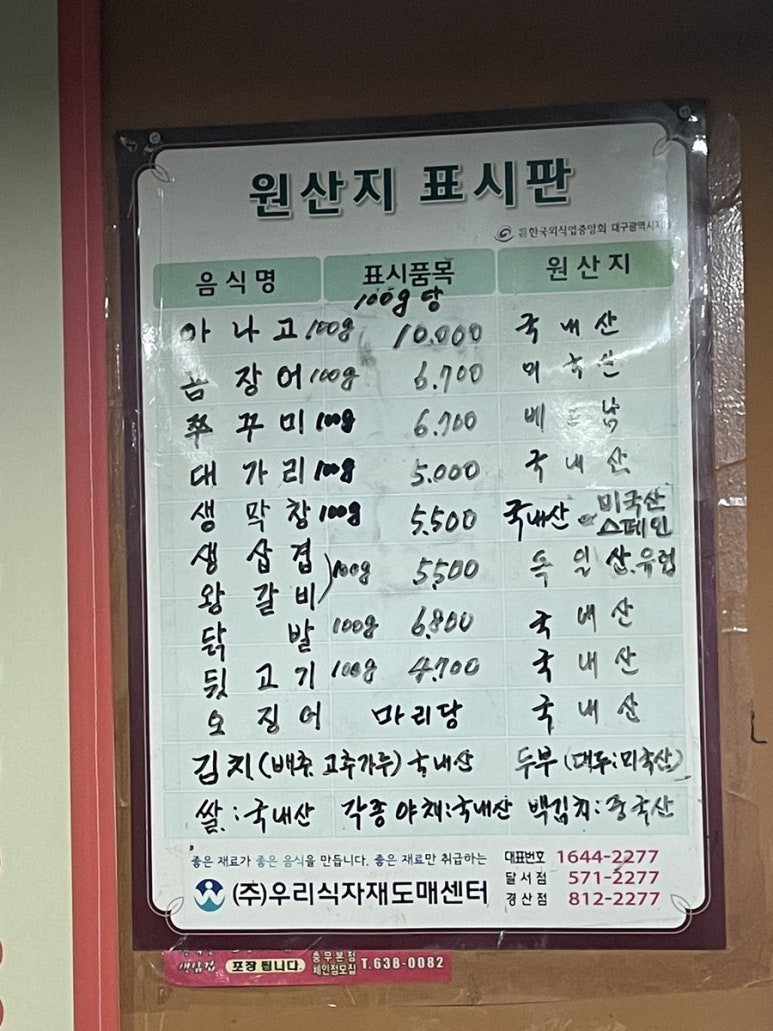 원산지 표시판
한국외식업중앙회 대구광역시지
음식명 표시품목 원산지
100g 당
아나고 100g 10.000 국내산
곰장어 100g 6.700 미국산
쭈꾸미 100g 6.700 베트남
대가리 100g 5.000 국내산
생막창 100g 5.500 국내산 미국산 스페인
생삼겹
왕갈비 100g 5500 독일산.유럽
닭발 100g 6.800 국내산
뒷고기 100g 4.700 국내산
오징어 마리당 국내산
김치(배추 고추가루) 국내산 두부(대두:미국산)
쌀:국내산 각종야채:국내산 백김치:중국산
좋은 재료가 좋은 음식을 만듭니다. 좋은 재료만 취급하는 대표번호 1644-2277
(주)우리식자재도매센터 달서점 571-2277
경산점 812-2277
포장 됩니다. 충무본점
체인점모집 T.638-0082